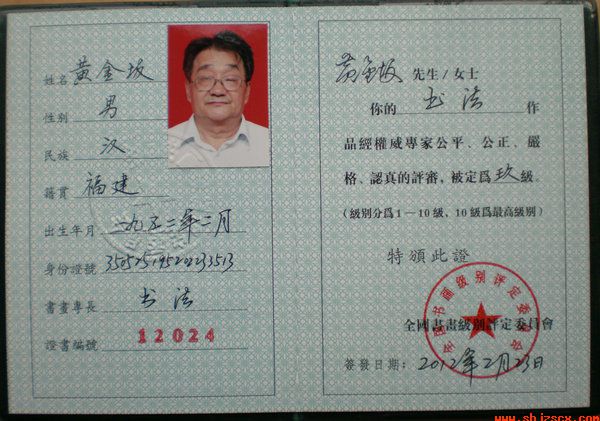 姓名 黄金坂
性别 男
民族 汉
籍貫 福建
出生年月 一九五二年二月
身份證號 350525195202233513
書畫專長 书法
證書編號 12024
黄金坂 先生/女士
你的 书法 作
品經權威專家公平、公正、嚴
格、認真的評審，被定爲玖級。
(級别分爲1—10級，10級爲最高級别)
特頒此證
全國書畫級别評定委員會
簽發日期：2012年2月23日
全国书画级别评定委员会
www.shjzscx.com